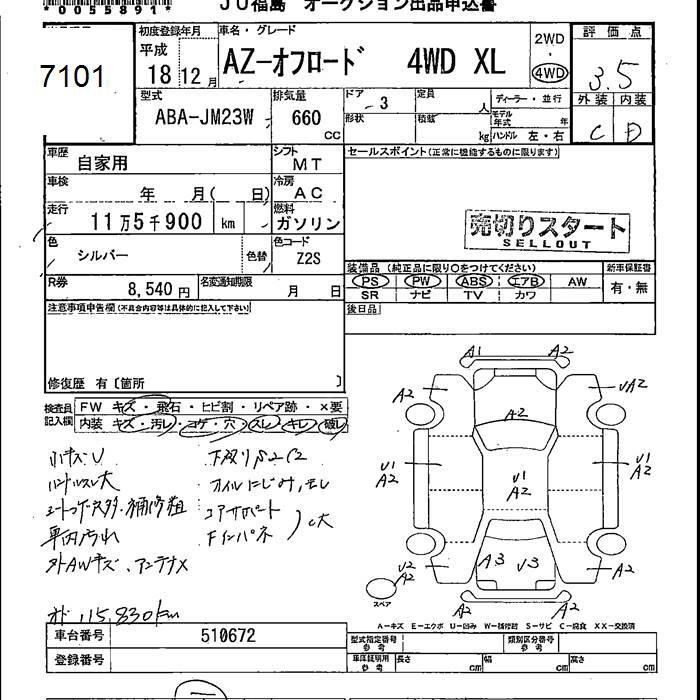 *0055891*
JU福島 オークション出品申込書
7101
初度登録年月
平成
18 12月
車名・グレード
AZ-オフロード 4WD XL
2WD
・
4WD
評価点
3.5
外装 内装
C D
型式
ABA-JM23W
排気量
660
CC
ドア 3
定員 人
形状
積載 kg
ディーラー・並行
モデル年式 年
ハンドル 左・右
車歴
自家用
シフト
MT
セールスポイント(正常に機能するものに限ります)
車検
年 月( 日)
冷房
AC
走行
11万5千900 km
燃料
ガソリン
売切りスタート
SELLOUT
色
シルバー
色替
色コード
Z2S
装備品 (純正品に限り○をつけてください)
新車保証書
PS PW ABS エアB AW
有・無
SR ナビ TV カワ
R券
8,540円
名変通知期限
月 日
後日品
注意事項申告欄(不具合内容等は具体的に記入して下さい)
修復歴 有〔箇所 〕
検査員記入欄
FW キズ・飛石・ヒビ割・リペア跡・×要
内装 キズ・汚レ・コゲ・穴・スレ・キレ・破レ
小キズU
ハンドルスレ大
車内汚れ
外AWキズ、アンテナX
オイルにじみ,モレ
コアサポート
Fインパネ
C大
オド 115,830km
A1 A2
A2 UA2
A2
U1 A2
U1 A2
U1 A2
A3 U3
U2 A2
A2
A2 A2
スペア
A-キズ E-エクボ U-凹み W-補修跡 S-サビ C-腐食 XX-交換済
車台番号 510672
型式指定番号 参考
類別区分番号 参考
登録番号
車庫証明用 参考
長さ cm
幅 cm
高さ cm